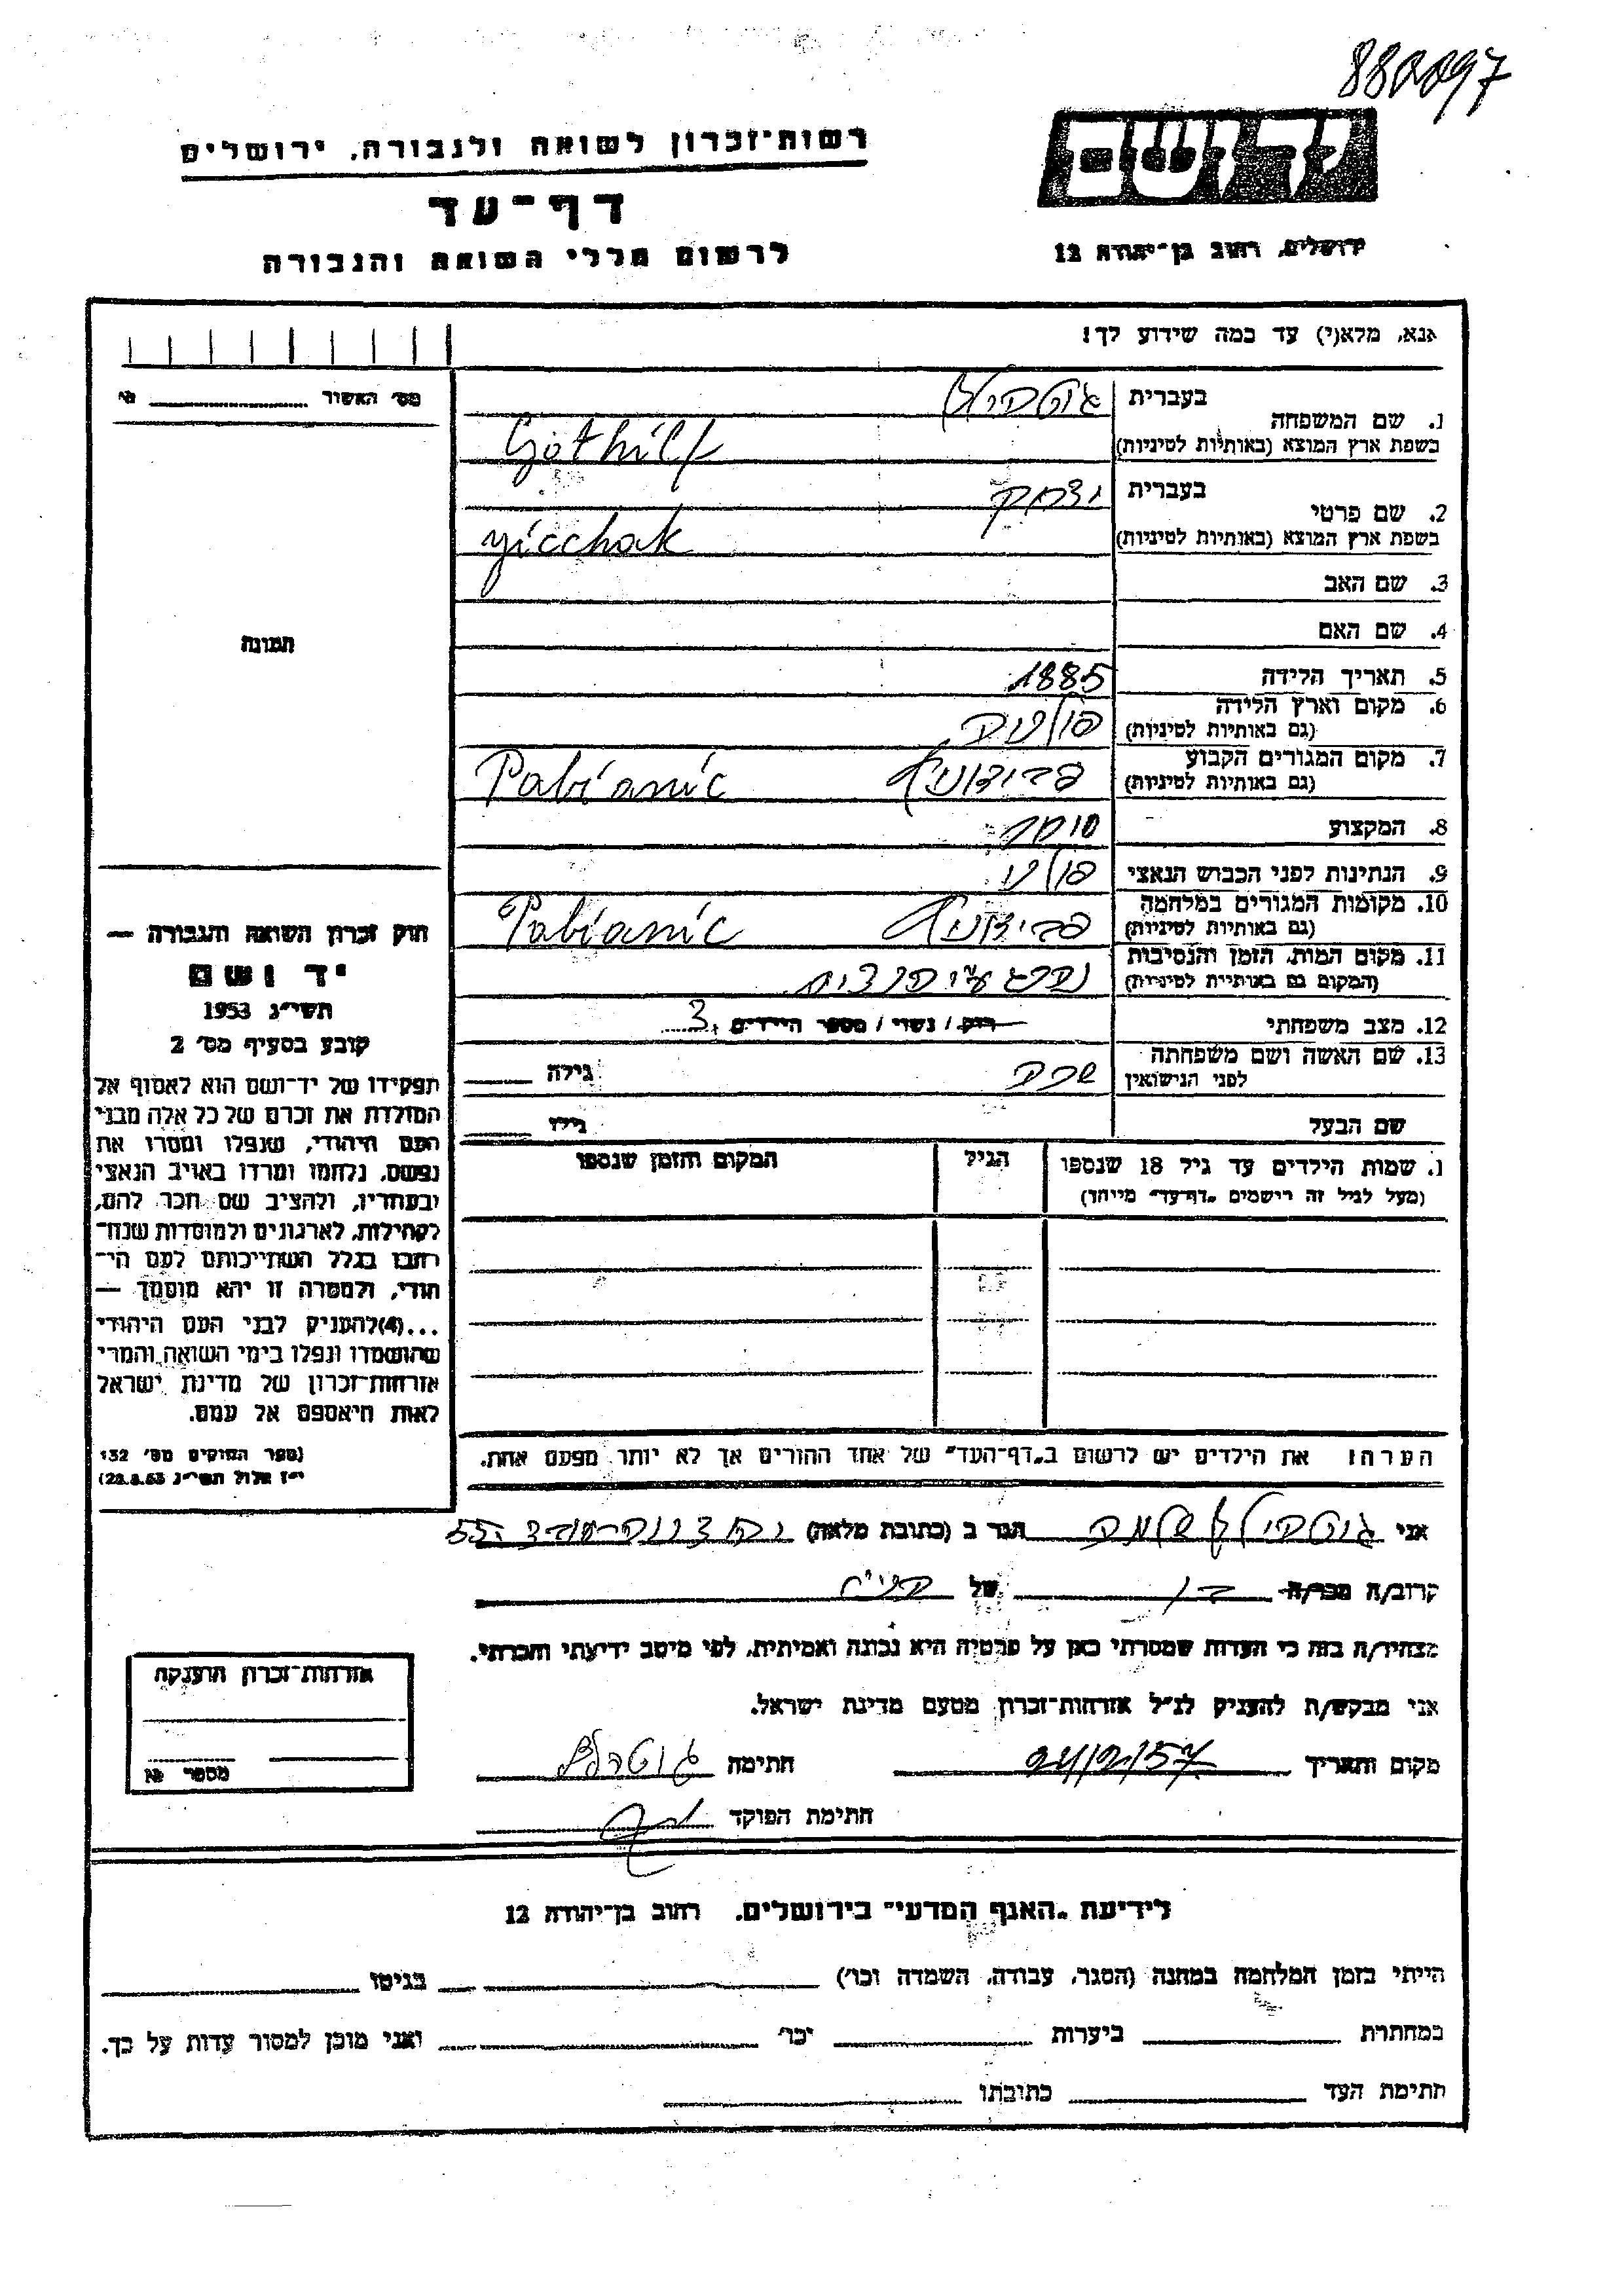 880097
רשות־זכרון לשואה ולגבורה, ירושלים
יד ושם
דף־עד
לרשום חללי השואה והגבורה
ירושלים, רחוב בן־יהודה 12
אנא, מלא(י) עד כמה שידוע לך!
מס׳ האשור
1. שם המשפחה
בעברית
בשפת ארץ המוצא (באותיות לטיניות) Gothilf
2. שם פרטי
בעברית יצחק
בשפת ארץ המוצא (באותיות לטיניות) yicchak
3. שם האב
4. שם האם
תמונה
5. תאריך הלידה 1885
6. מקום וארץ הלידה
(גם באותיות לטיניות)
7. מקום המגורים הקבוע
(גם באותיות לטיניות) Pabianic
8. המקצוע סוחר
9. הנתינות לפני הכבוש הנאצי פולני
10. מקומות המגורים במלחמה
(גם באותיות לטיניות) Pabianic
11. מקום המות, הזמן והנסיבות
(המקום גם באותיות לטיניות)
12. מצב משפחתי רוק / נשוי / מספר הילדים 3
13. שם האשה ושם משפחתה
לפני הנישואין שרה גילה
שם הבעל גילו
1. שמות הילדים עד גיל 18 שנספו הגיל המקום והזמן שנספו
(מעל לגיל זה רישמים „דף־עד״ מייחד)
הערה: את הילדים יש לרשום ב„דף־העד״ של אחד ההורים אך לא יותר מפעם אחת.
חוק זכרון השואה והגבורה —
יד ושם
תשי״ג 1953
קובע בסעיף מס׳ 2
תפקידו של יד־ושם הוא לאסוף אל
המולדת את זכרם של כל אלה מבני
העם היהודי, שנפלו ומסרו את
נפשם, נלחמו ומרדו באויב הנאצי
ובעוזריו, ולהציב שם וזכר להם,
לקהילות, לארגונים ולמוסדות שנח־
רבו בגלל השתייכותם לעם הי־
הודי, ולמטרה זו יהא מוסמך —
...(4)להעניק לבני העם היהודי
שהושמדו ונפלו בימי השואה והמרי
אזרחות־זכרון של מדינת ישראל
לאות היאספם אל עמם.
(ספר החוקים מס׳ 132
י״ז אלול תשי״ג 28.8.53)
אני גוטהילף שלמה הגר ב (כתובת מלאה) 55
קרוב/ה מכר/ה בן של הנ״ל
מצהיר/ה בזה כי העדות שמסרתי כאן על פרטיה היא נכונה ואמיתית, לפי מיטב ידיעתי והכרתי.
אני מבקש/ת להעניק לנ״ל אזרחות־זכרון מטעם מדינת ישראל.
מקום ותאריך 24/2/57 חתימה
חתימת הפוקד
אזרחות־זכרון הוענקה
מספר №
לידיעת „האגף המדעי״ בירושלים, רחוב בן־יהודה 12
הייתי בזמן המלחמה במחנה (הסגר, עבודה, השמדה וכו׳) בגיטו
במחתרת ביערות וכו׳ ואני מוכן למסור עדות על כך.
חתימת העד כתובתו